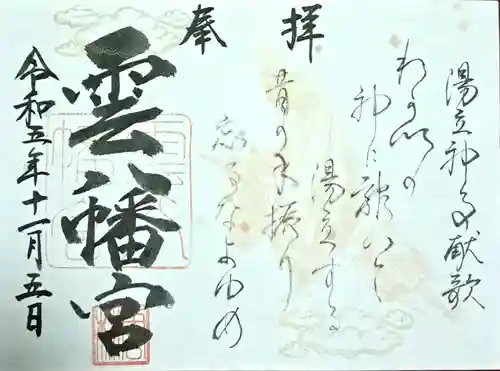 奉拝
湯立神事献歌
神に
湯立する
昔の手振り
忘るなよゆめ
雲八幡宮
令和五年十一月五日